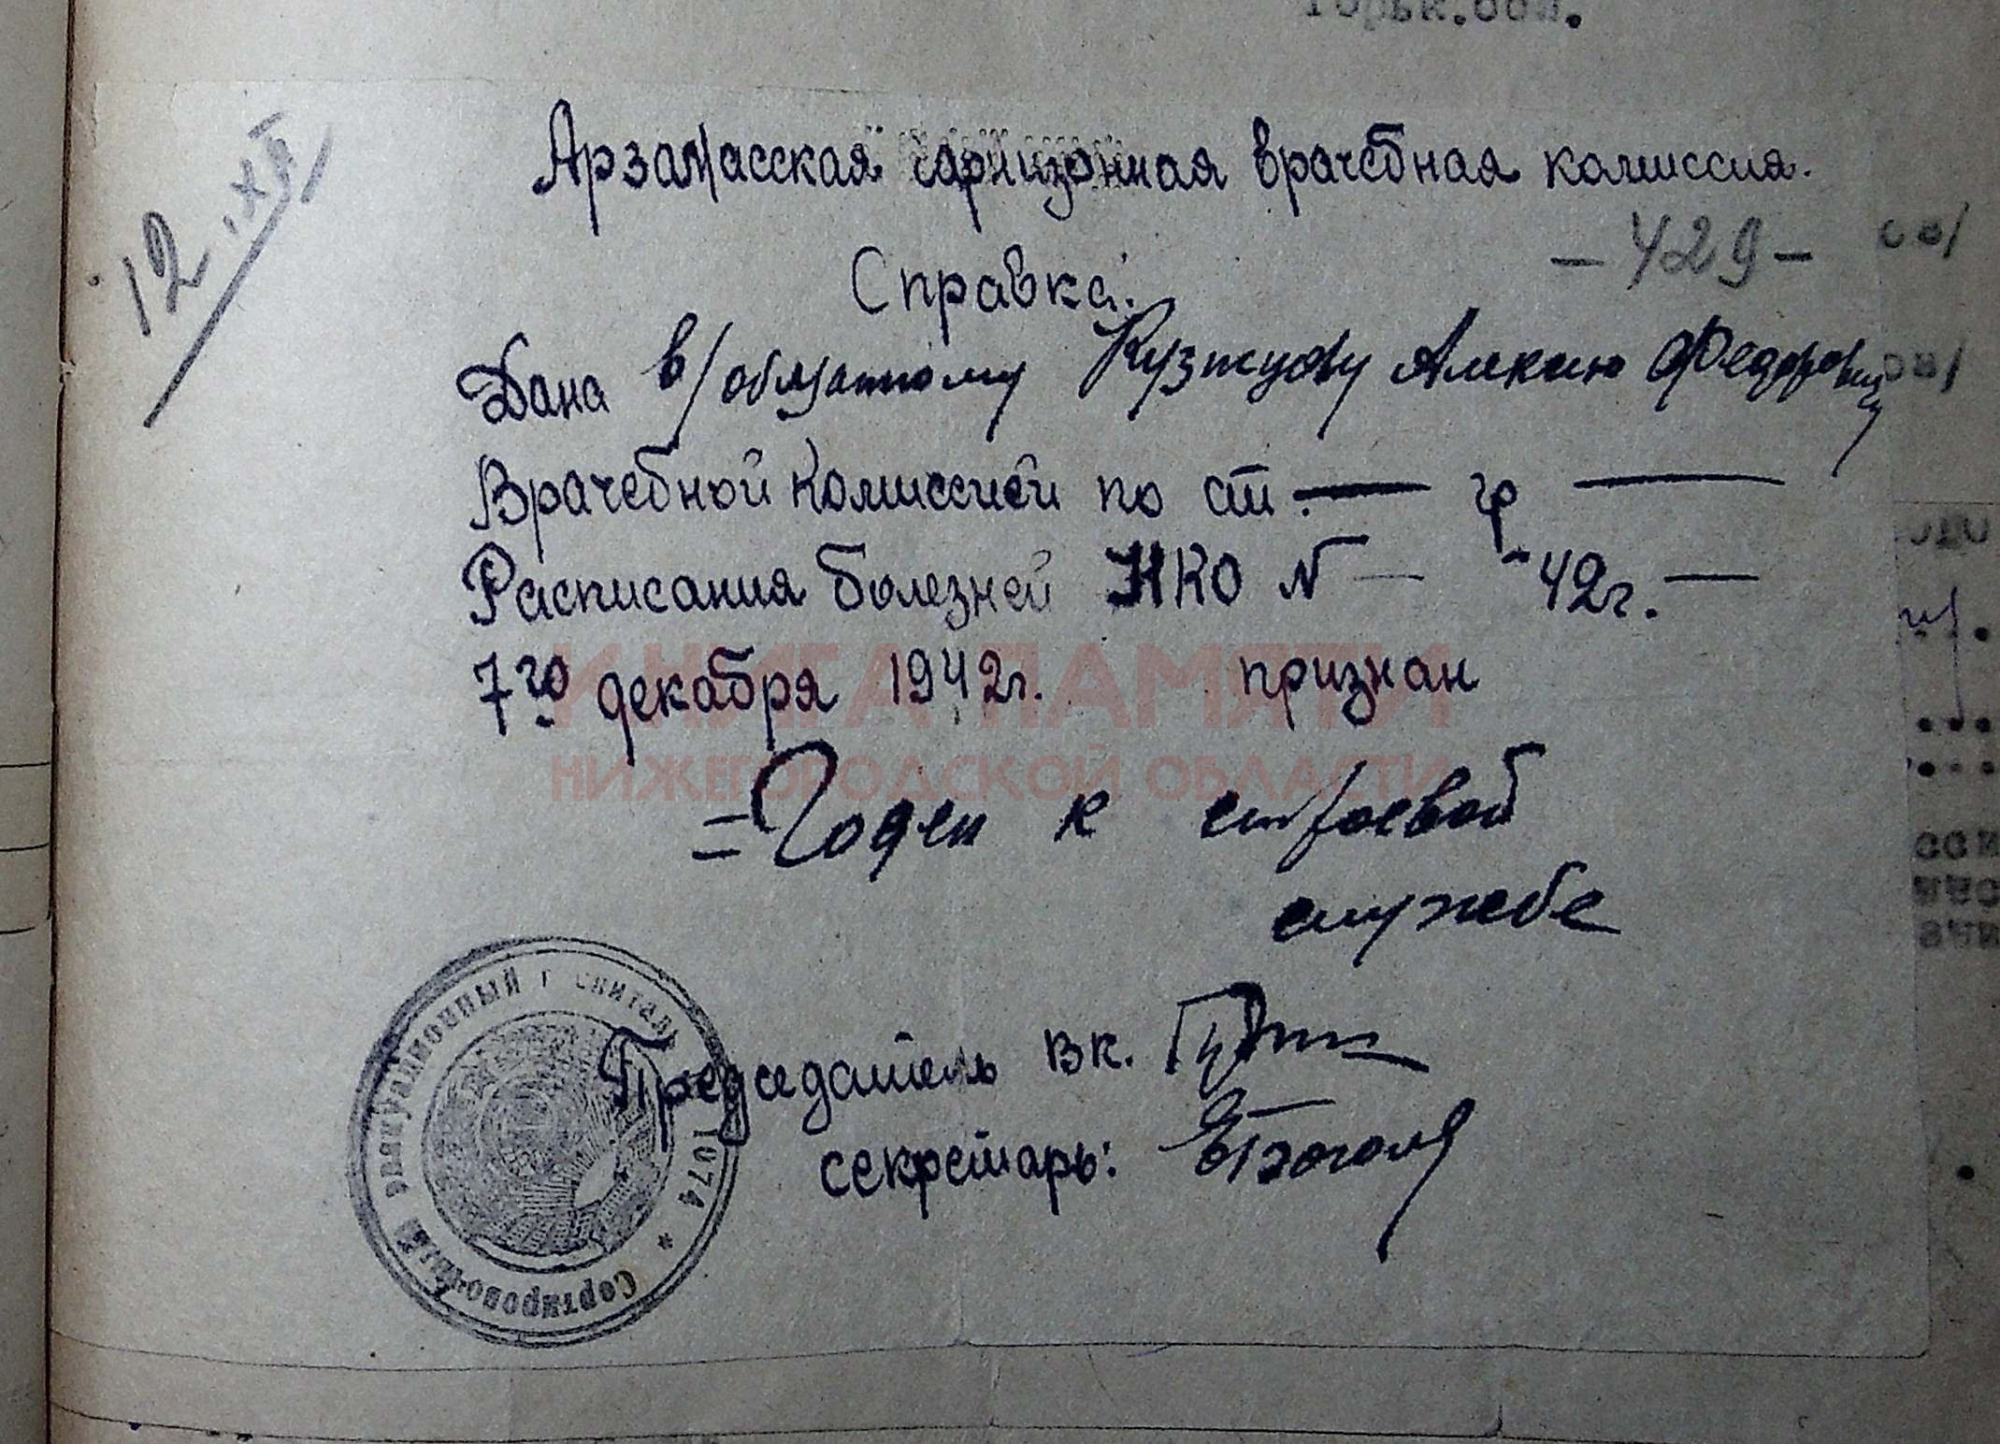 Горьк.обл.
12.XII
Арзамасская гарнизонная врачебная комиссия.
- 429 -
Справка:
Дана в/обязанному Кузнецову Алексею Федоровичу
Врачебной комиссией по ст. — гр —
Расписания болезней НКО № — -42г. —
7го декабря 1942г. признан
КНИГА ПАМЯТИ
НИЖЕГОРОДСКОЙ ОБЛАСТИ
= Годен к строевой
службе
Председатель ВК.
секретарь:
Сортировочный эвакуационный госпиталь 1074 *